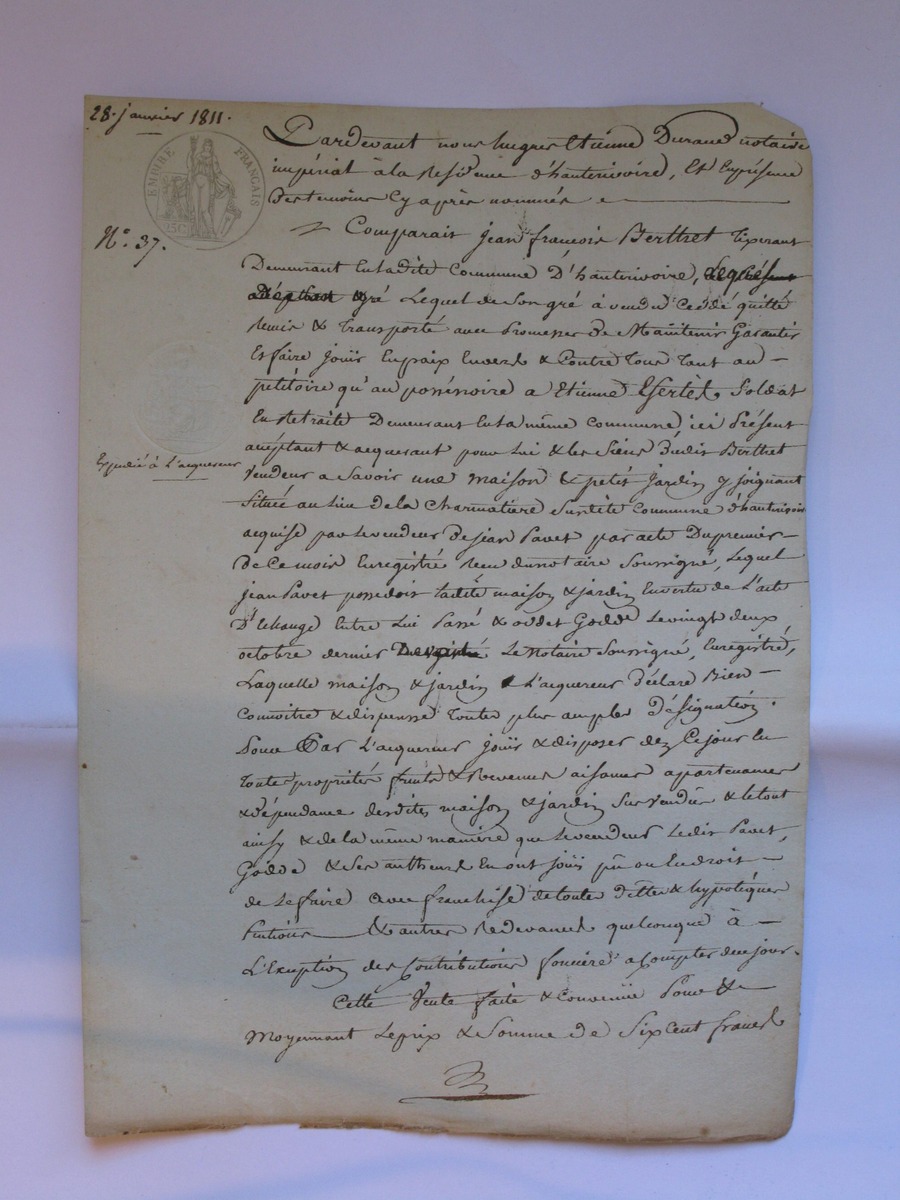 28. janvier 1811.
EMPIRE FRANÇAIS
25C
N.° 37.
Expédié à L'acquereur
Pardevant nous hugues Etienne Durand notaire
impérial à la Residence d'hauterivoire, Et Enprésence
Des temoins Cyaprès nommés
Comparait Jean francois Berthet Tixerant
Demeurant Enladite Commune D'hauterivoire,
gré Lequel de Son gré à vendu Ceddé quitté
Remis & Transporté avec Promesses de Maintenir Garantir
Et faire Jouir Enpaix Envers & Contre Tous Tant au –
petitoire qu'au possessoire a Etienne Soldat
En Retraite Demeurant Enla même Commune, ici Présent
acceptant & acquerant pour Lui & les Siens Dudit Berthet
Vendeur a Savoir une maison & petit Jardin y joignant
Située au Lieu de la Charmatière Susdite Commune d'hauterivoire
acquise par Levendeur De jean Pavet par acte Dupremier –
de Ce mois Enregistré Reçu du notaire Soussigné, Lequel
jean Pavet possedoit ladite maison & jardin Envertu de L'acte
D'Echange Entre Lui Passé & Godde Levingt deux
octobre dernier Le Notaire Soussigné, Enregistré,
Laquelle maison & jardin L'acquereur Déclare Bien –
Connoitre & dispense Toutes plus amples Désignation.
Pour Par L'acquereur Jouir & disposer dez Ce jour En
Toute propriété fruits & Revenus aisances apartenances
& Dépendance desdites maison & jardin Sus Vendus & Letout
ainsy & de la même manière que Levendeur Ledit Pavet,
Godde & Ses autheurs En ont Jouï pû ou Eu droit –
de Le faire avec franchise de toutes dettes & hypotèques
Pentions & autres Redevances quelconques à –
L'Exeption des Contributions foncière a Compter de ce jour.
Cette Vente faite & Convenüe Pour & –
Moyennant Leprix & Somme de Six Cent francs